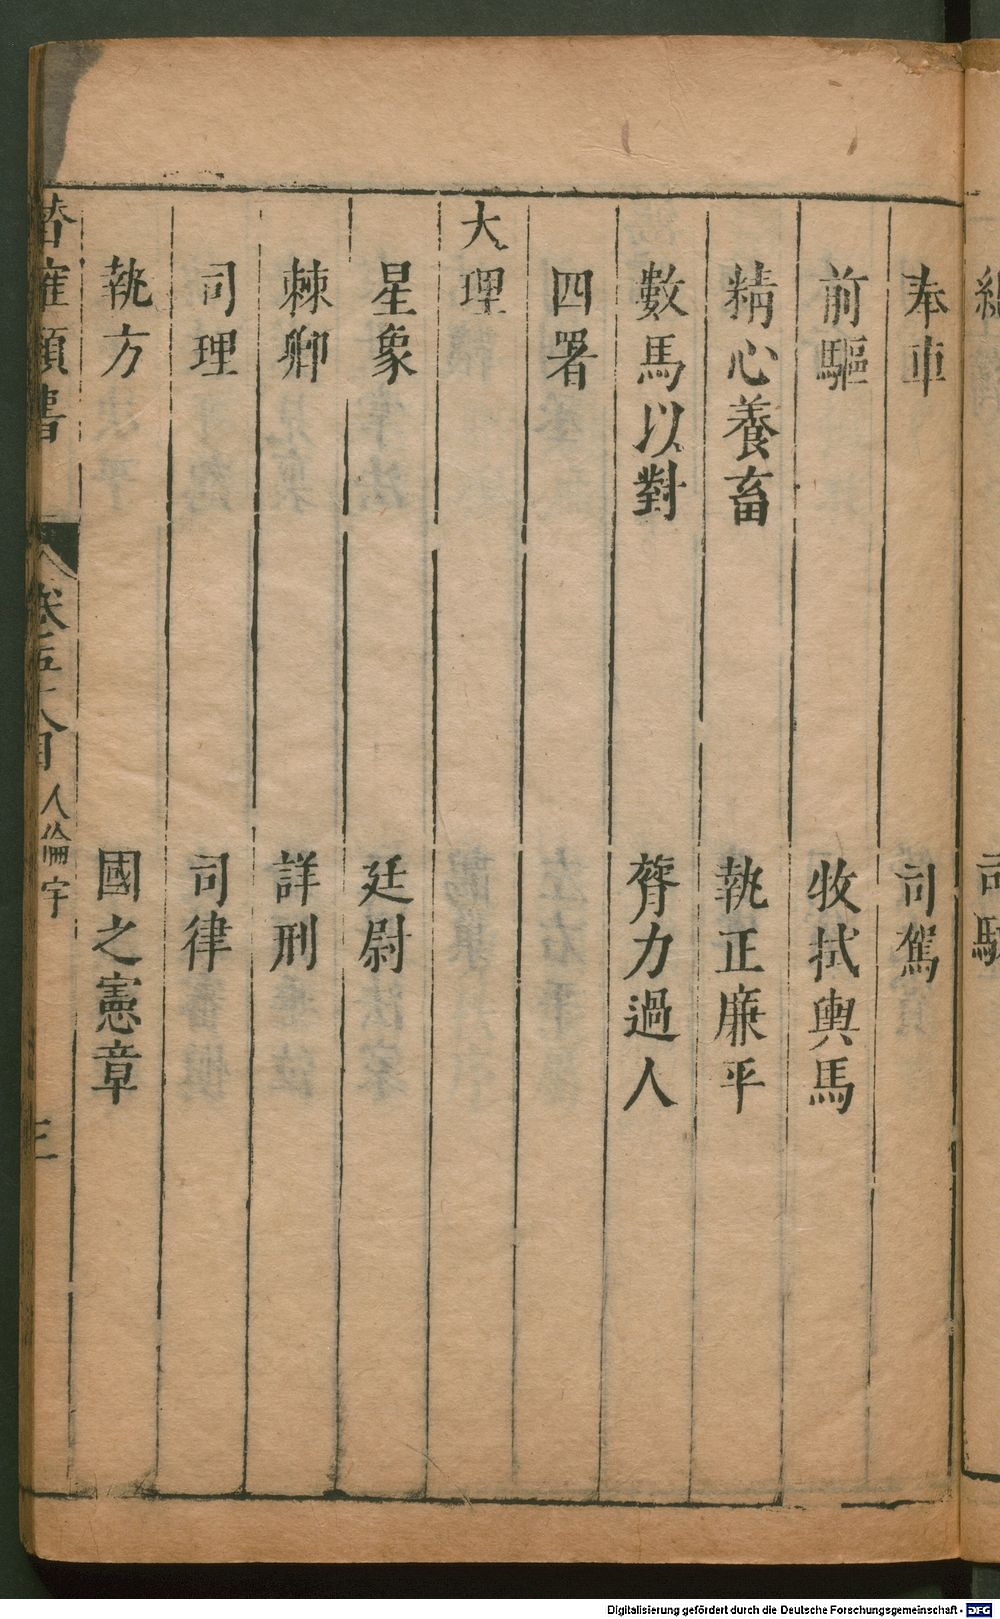 奉車　司駕
前驅　牧拭輿馬
精心養畜　執正廉平
數馬以對　膂力過人
四署
大理
星象　廷尉
棘卿　詳刑
司理　司律
執方　國之憲章
卷五十八目　人倫字　三
Digitalisierung gefördert durch die Deutsche Forschungsgemeinschaft - DFG